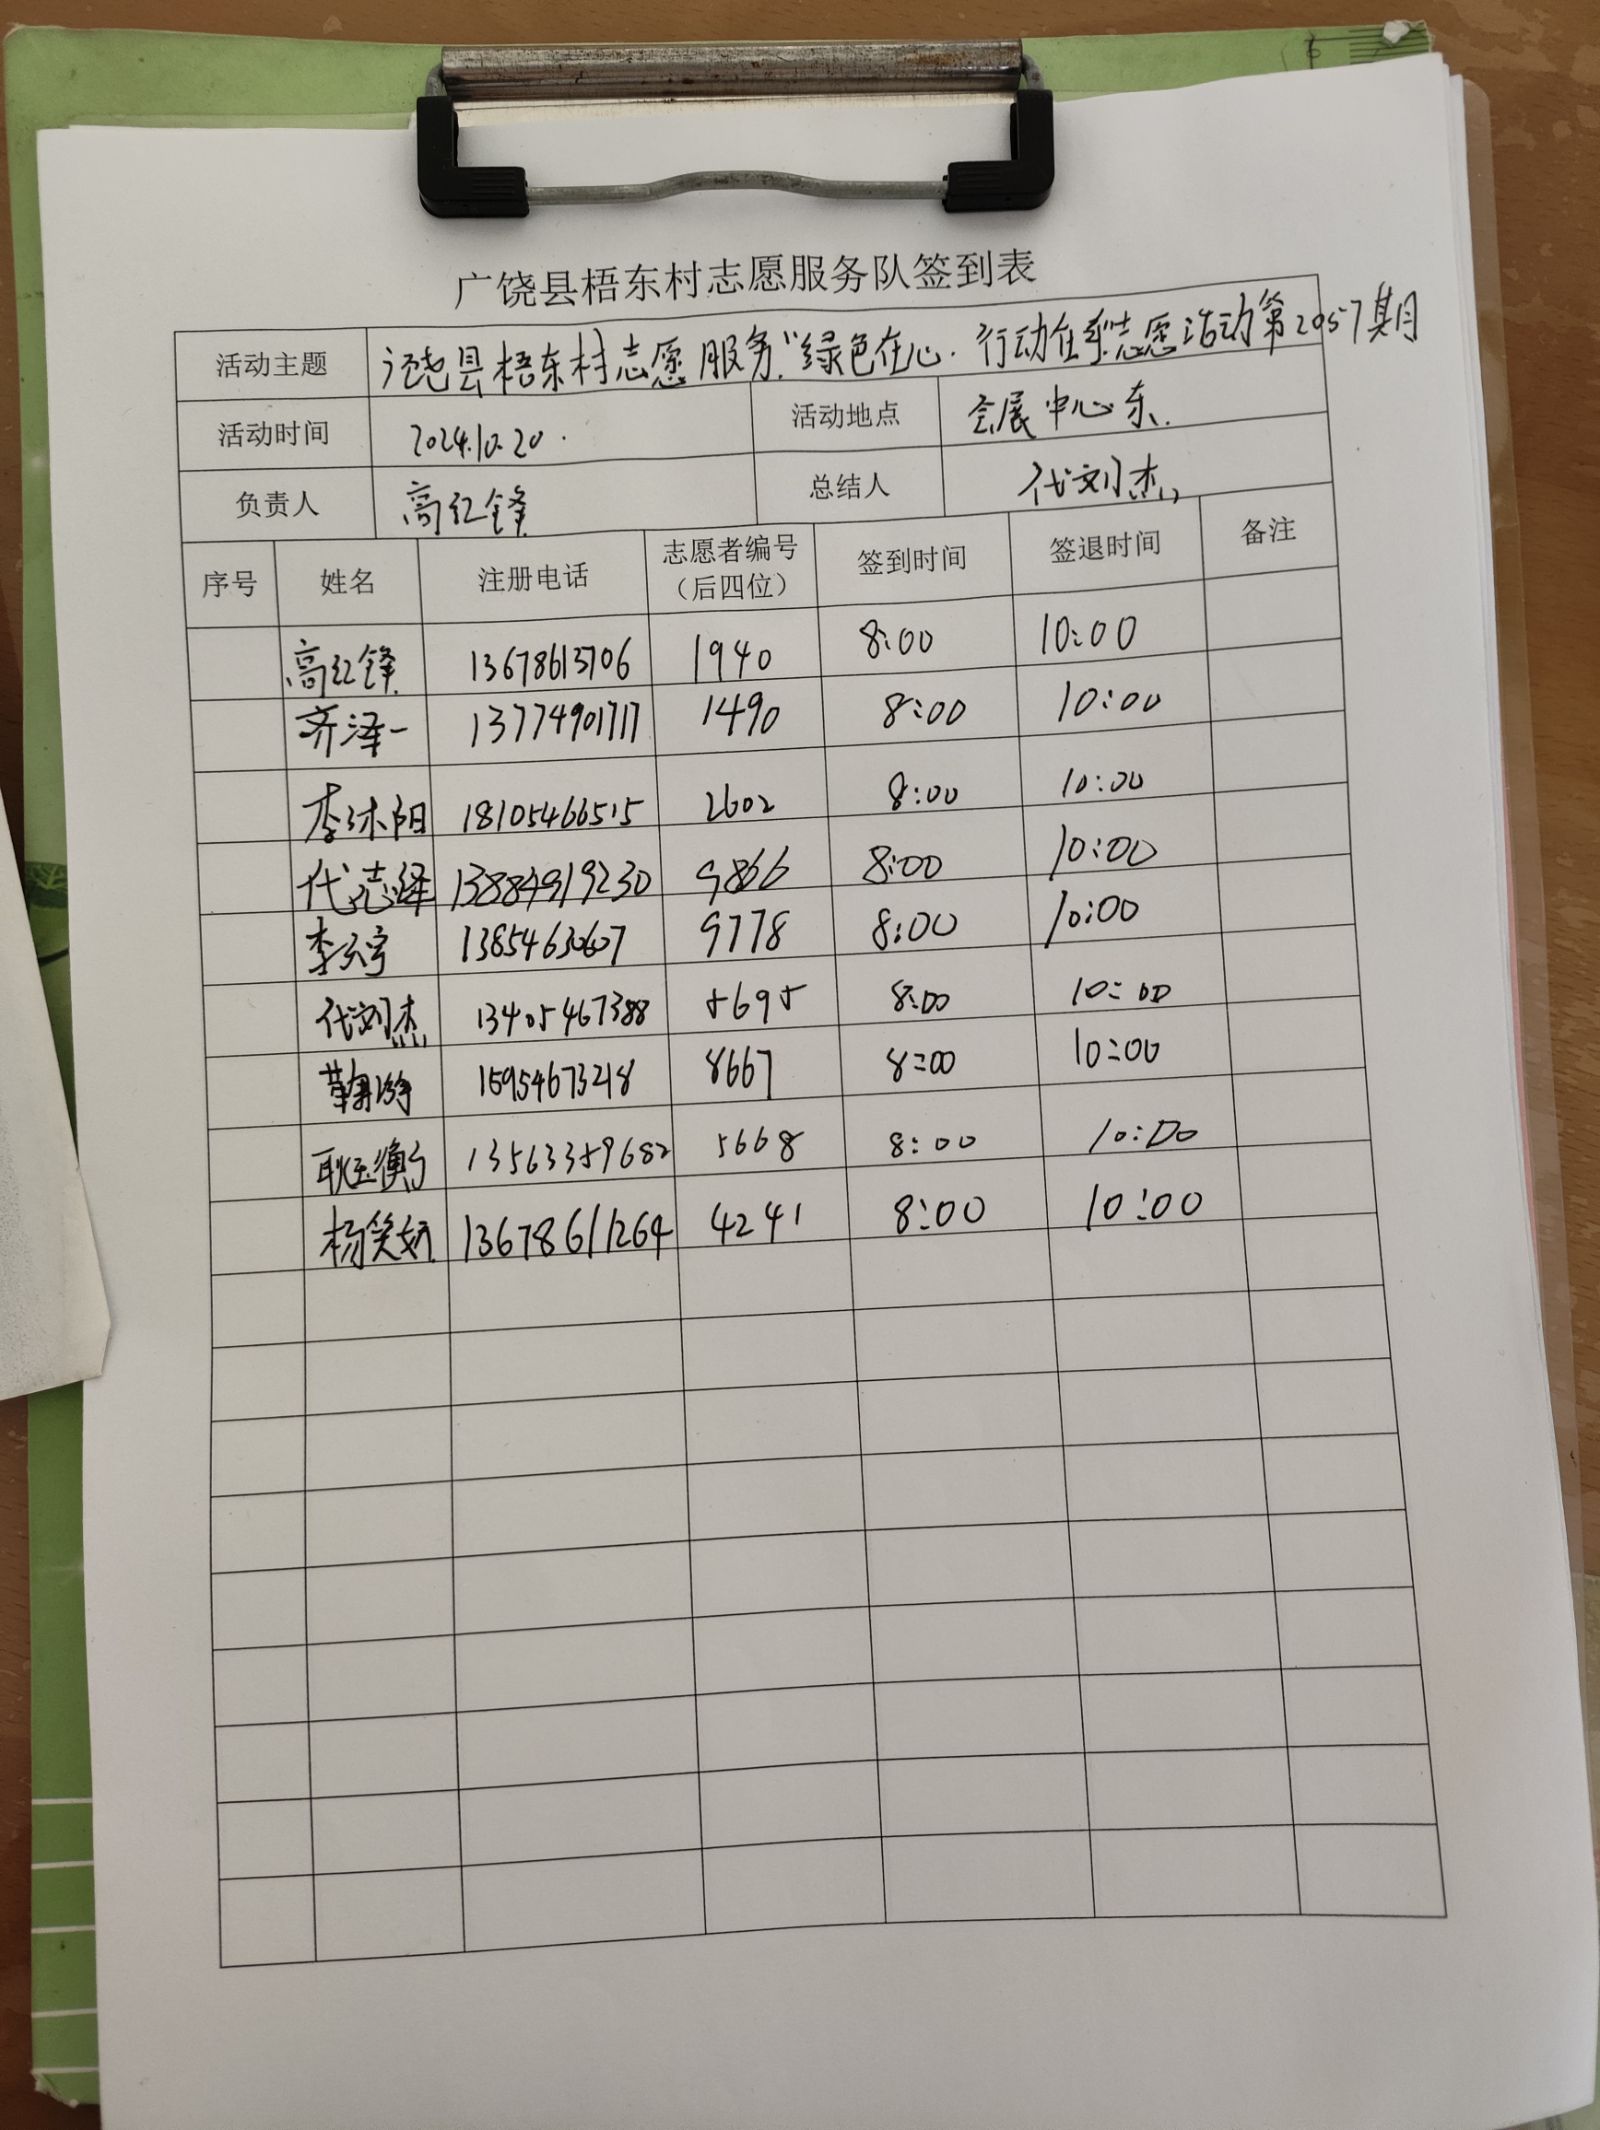 广饶县梧东村志愿服务队签到表
活动主题 广饶县梧东村志愿服务“绿色在心.行动在手”志愿活动第2057期
活动时间 2024.10.20. 活动地点 会展中心东.
负责人 高红锋 总结人 代刘杰
序号 姓名 注册电话 志愿者编号（后四位） 签到时间 签退时间 备注
高红锋 13678613706 1940 8:00 10:00
齐泽一 13774901717 1490 8:00 10:00
李沐阳 18105466515 2602 8:00 10:00
代志泽 13884919230 9866 8:00 10:00
李云宇 13854630607 9778 8:00 10:00
代刘杰 13405467388 5695 8:00 10:00
15954673218 8667 8:00 10:00
耿玉衡 13563359682 5668 8:00 10:00
杨笑妍 13678611264 4241 8:00 10:00